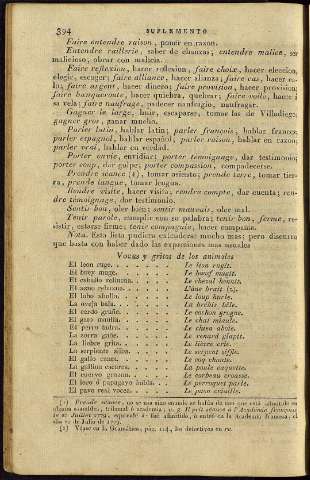 394 SUPLEMENTO
Faire entendre raison, poner en razon.
Entendre raillerie, saber de chanzas; entendre malice, ser
malicioso, obrar con malicia.
Faire reflexion, hacer reflexion, faire choix, hacer eleccion,
elegir, escoger; faire alliance, hacer alianza; faire cas, hacer ca-
so; faire argent, hacer dinero; faire provision, hacer provision;
faire banqueroute, hacer quiebra, quebrar; faire voile, hacer á
la vela; faire naufrage, padecer naufragio, naufragar.
Gagner le large, huir, escaparse, tomar las de Villadiego;
gagner gros, ganar mucho.
Parler latin, hablar latin; parler françois, hablar frances;
parler espagnol, hablar español; parler raison, hablar en razon;
parler vrai, hablar en verdad.
Porter envie, envidiar; porter témoignage, dar testimonio;
porter coup, dar golpe; porter compassion, compadecerse.
Prendre séance (1), tomar asiento; prendre terre, tomar tier-
ra; prendre langue, tomar lengua.
Rendre visite, hacer visita; rendre compte, dar cuenta; ren-
dre témoignage, dar testimonio.
Sentir bon, oler bien; sentir mauvais, oler mal.
Tenir parole, cumplir con su palabra; tenir bon, ferme, re-
sistir, estarse firme; tenir compagnie, hacer compañia.
Nota. Esta lista pudiera extenderse mucho mas; pero discurro
que basta con haber dado las expresiones mas usuales
Voces y gritos de los animales
El leon ruge. . . . . . . Le lion rugit.
El buey muge. . . . . . . Le bœuf mugit.
El caballo relincha. . . . . . . Le cheval hennit.
El asno rebuzna. . . . . . . L'âne brait (2).
El lobo ahulla. . . . . . . Le loup hurle.
La oveja bala. . . . . . . La brébis bêle.
El cerdo gruñe. . . . . . . Le cochon grogne.
El gato maulla. . . . . . . Le chat miaule.
El perro ladra. . . . . . . Le chien aboie.
La zorra gañe. . . . . . . Le renard glapit.
La liebre grita. . . . . . . Le lièvre crie.
La serpiente silba. . . . . . . Le serpent siffle.
El gallo canta. . . . . . . Le coq chante.
La gallina cacarea. . . . . . . La poule caquette.
El cuervo grazna. . . . . . . Le corbeau croasse.
El loro ó papagayo habla. . . . . . . Le perroquet parle.
El pavo real vocea. . . . . . . Le paon criaille.
(1) Prendre séance, no se usa sino quando se habla de uno que está admitido en
alguna asamblea, tribunal ó academia; v. g. Il prit séance à l'Académie françoise
le 20 Juillet 1779, 
dia 20 de Julio de 1779.
(2) Vease en la Gramática, pág. 114, los defectivos en re.